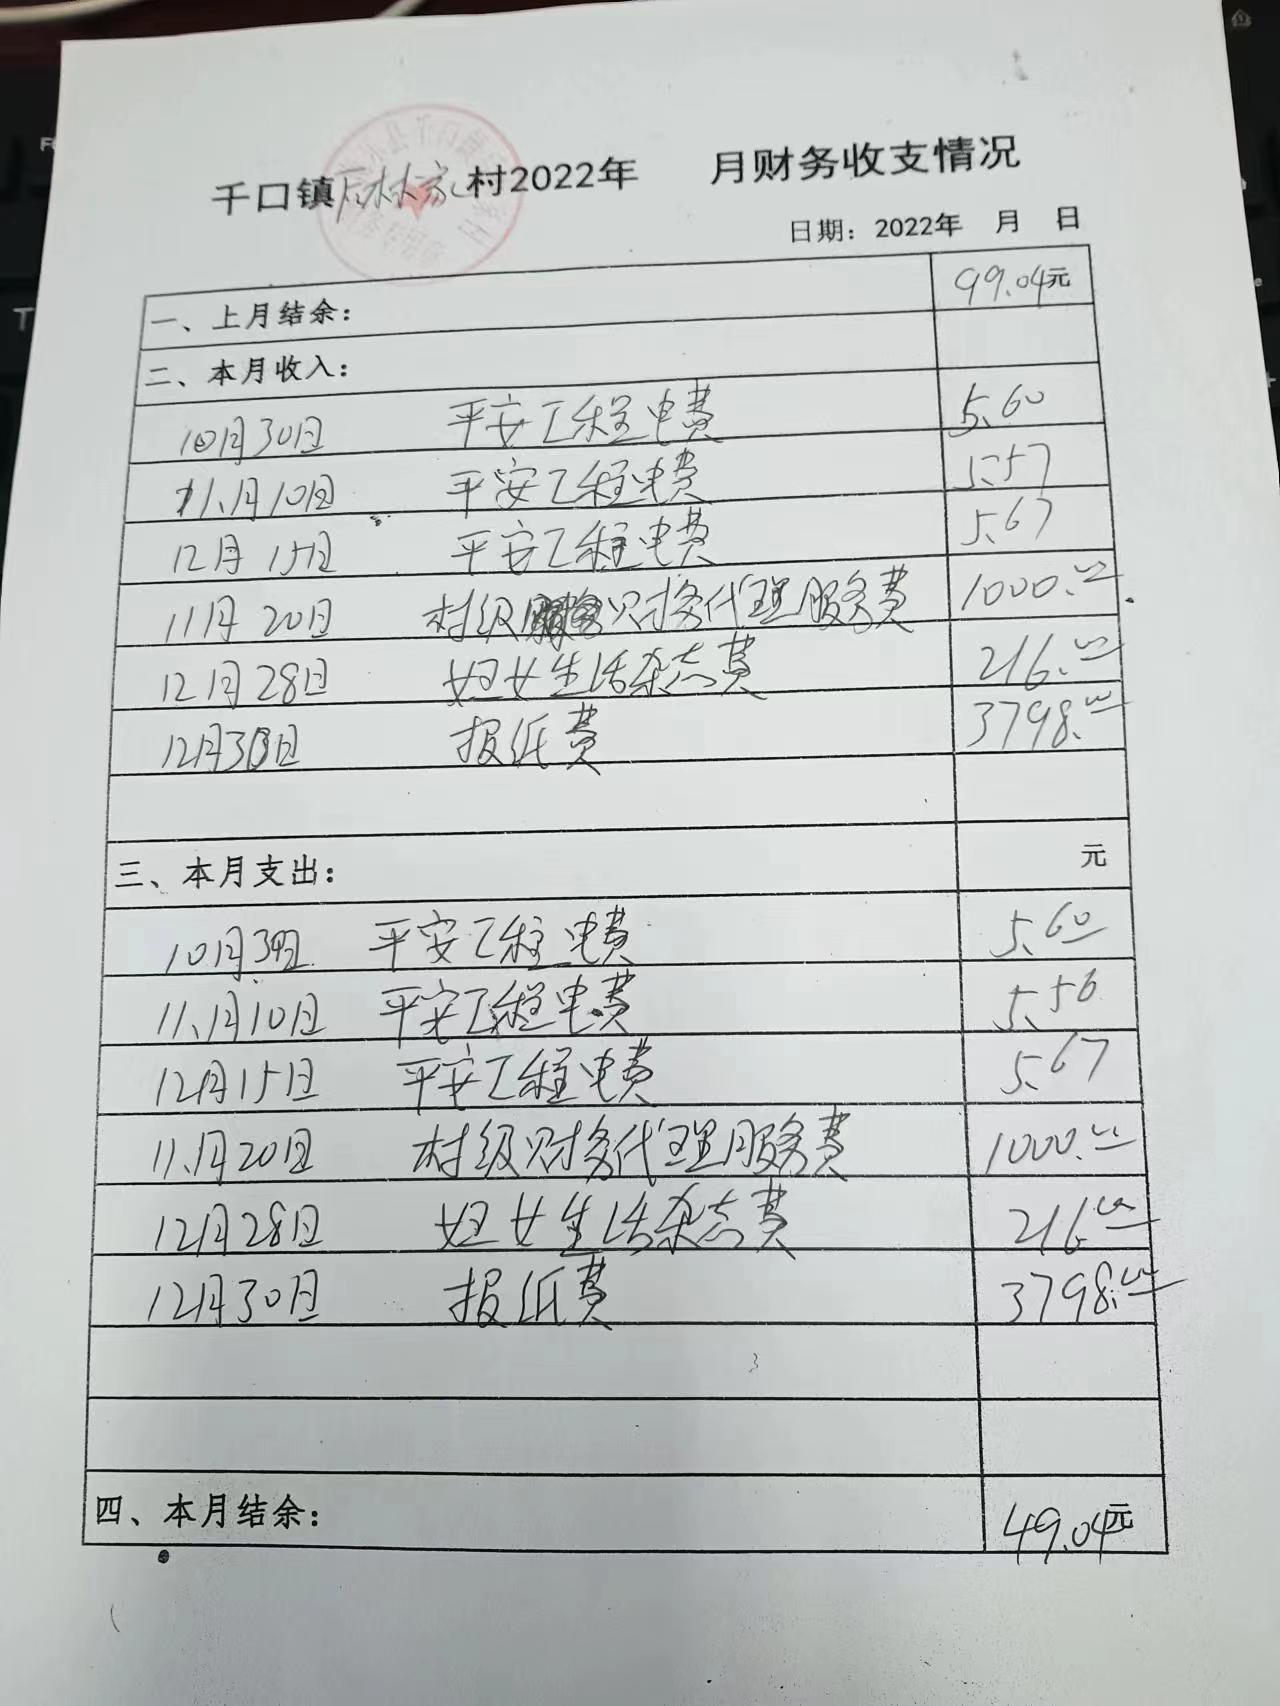 千口镇后林家村2022年 月财务收支情况
日期：2022年 月 日
一、上月结余： 99.04元
二、本月收入：
10月30日 平安工程电费 5.60
11.月10日 平安工程电费 5.57
12月15日 平安工程电费 5.67
11月20日 村级财务代理服务费 1000.00
12月28日 妇女生活杂志费 216.00
12月30日 报纸费 3798.00
三、本月支出： 元
10月30日 平安工程电费 5.60
11.月10日 平安工程电费 5.56
12月15日 平安工程电费 5.67
11.月20日 村级财务代理服务费 1000.00
12月28日 妇女生活杂志费 216.00
12月30日 报纸费 3798.00
四、本月结余： 49.04元